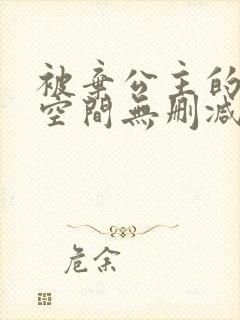 被棄公主的
空間無刪減
危余